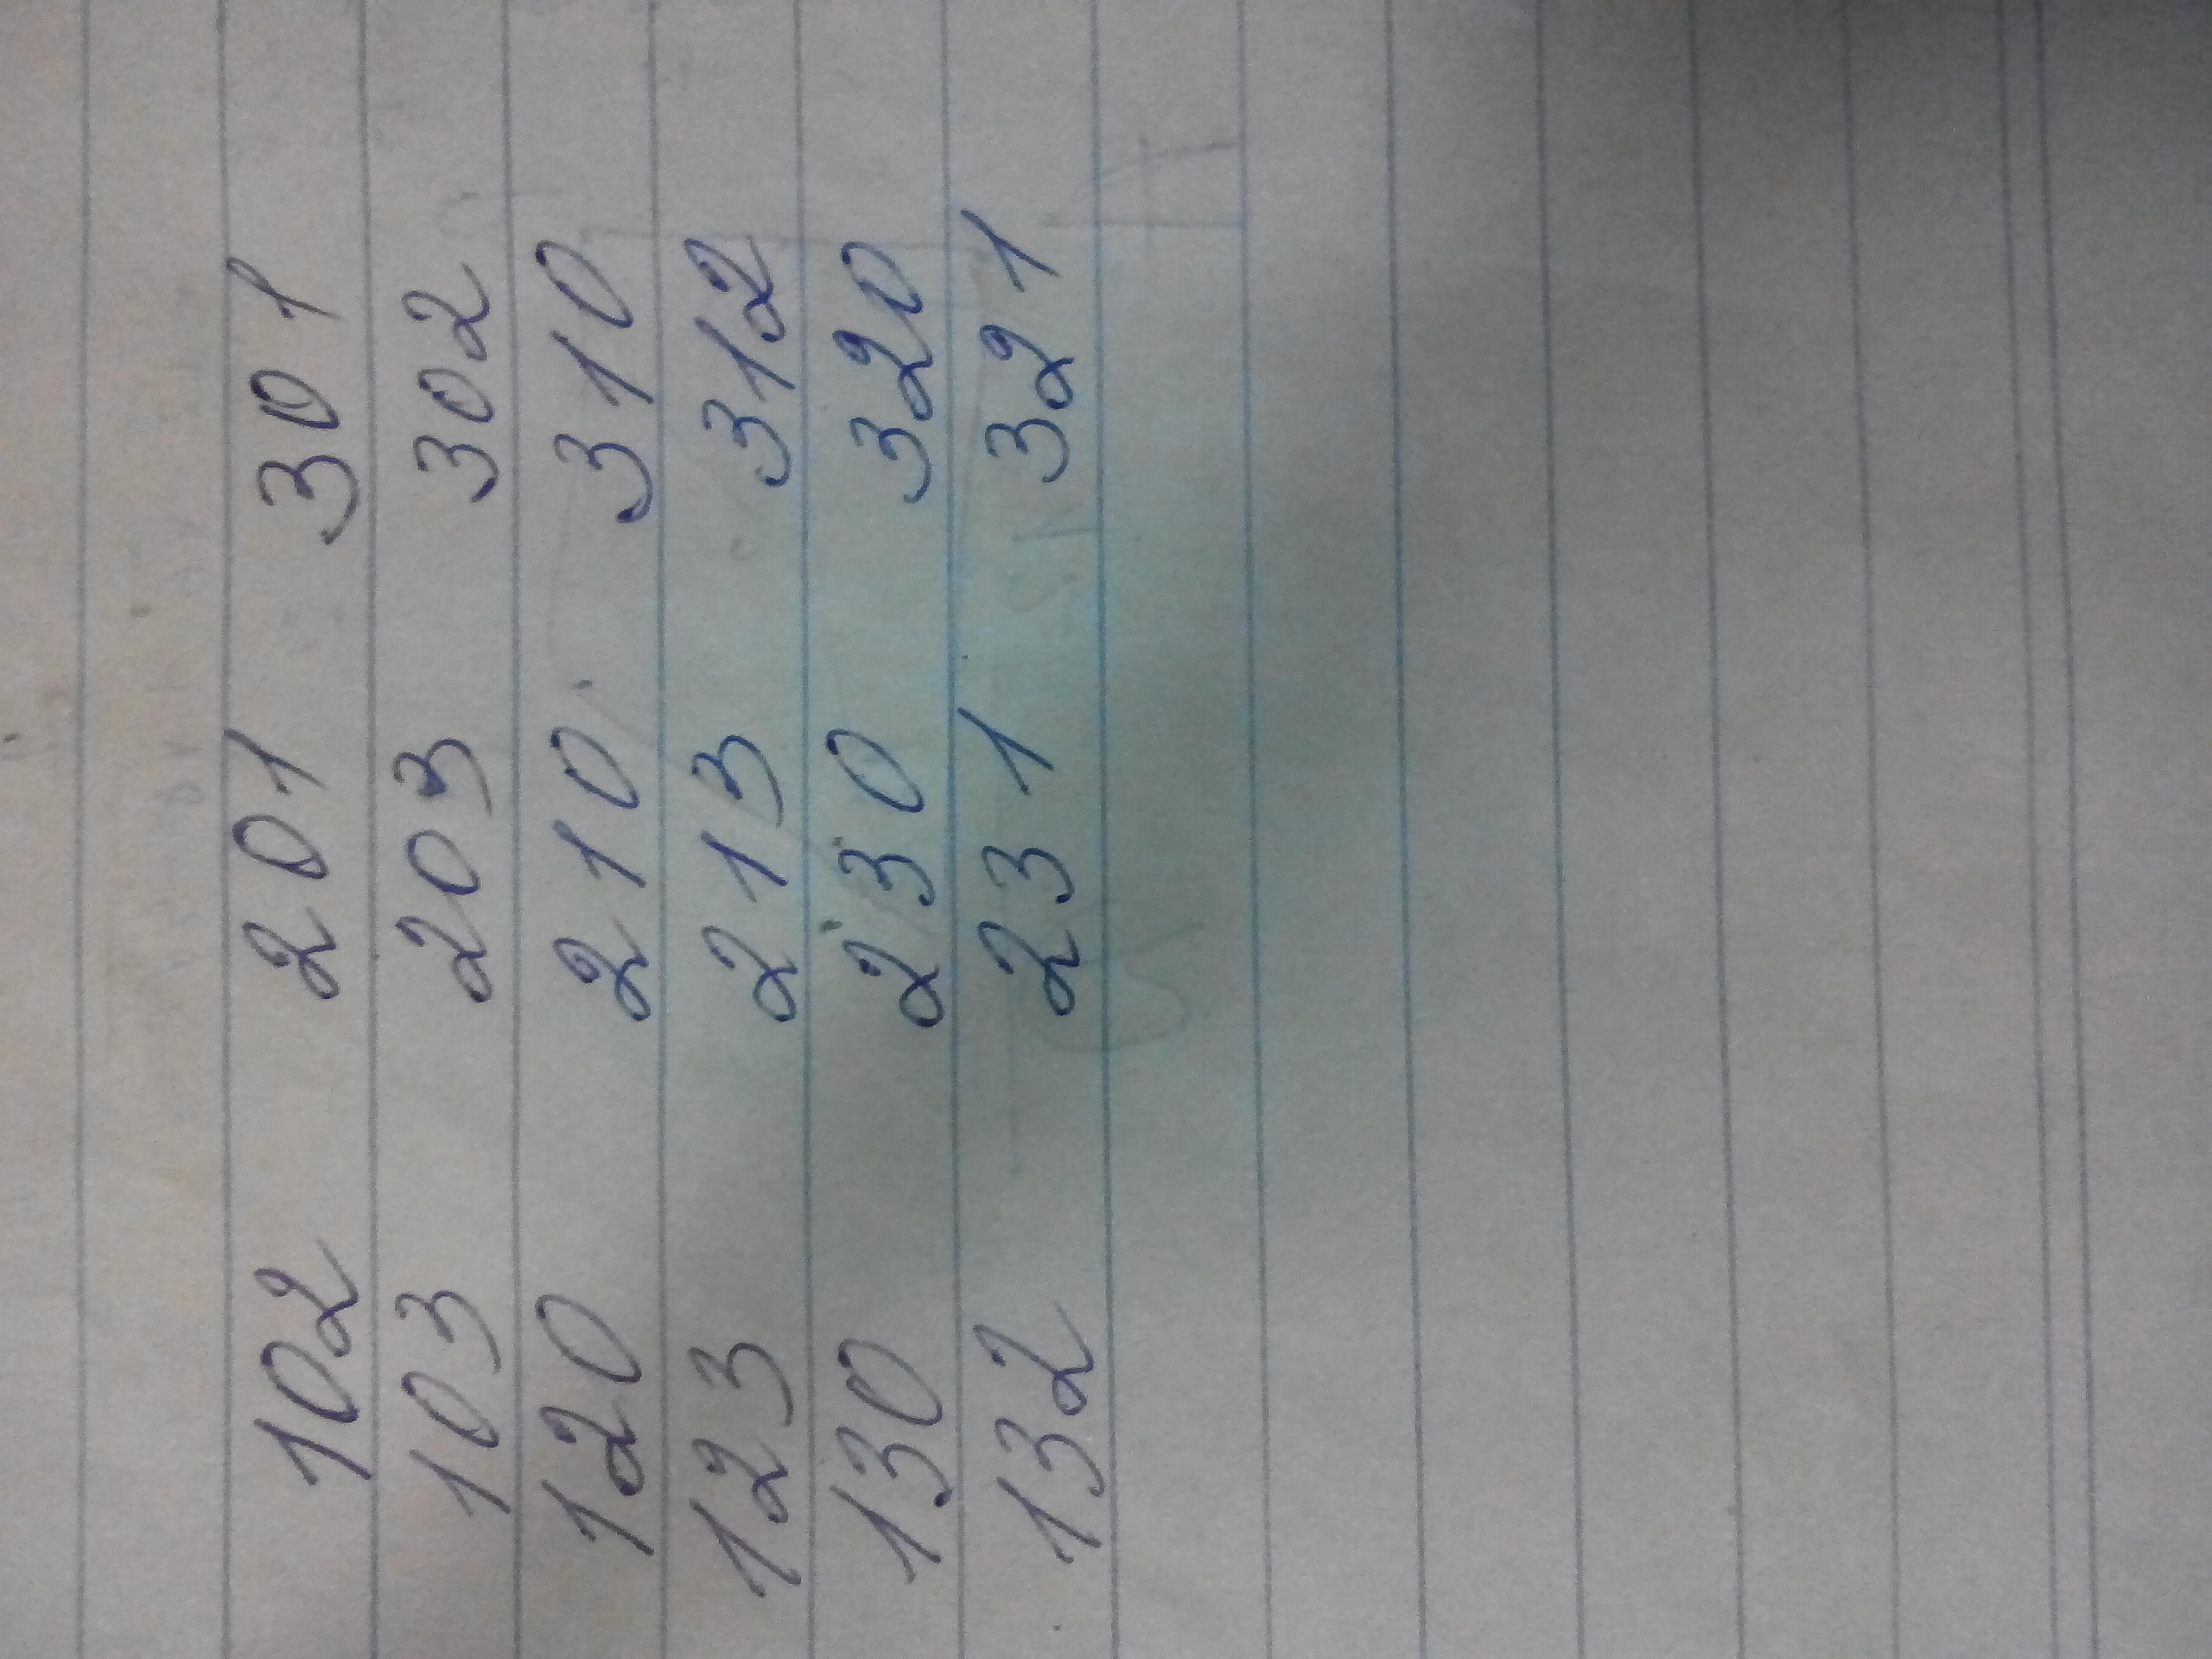 102 201 301
103 203 302
120 210 310
123 213 312
130 230 320
132 231 321